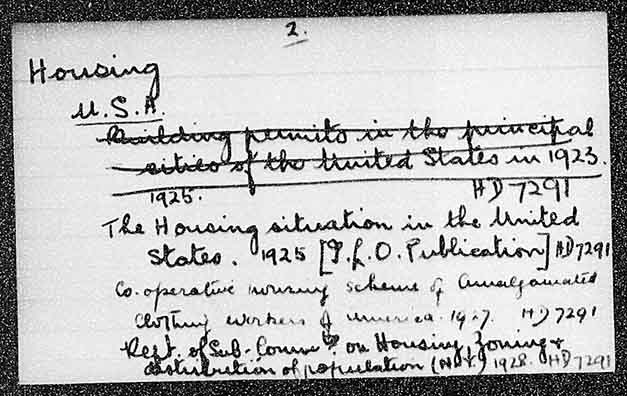 2.
Housing
U.S.A.
Building permits in the principal
cities of the United States in 1923.
1925. HD 7291
The Housing situation in the United
States. 1925 [I.L.O. Publication] HD 7291
Co-operative housing scheme of Amalgamated
Clothing Workers of America. 1927. HD 7291
Rept. of Sub-Commee. on Housing, Zoning &
distribution of population (N.Y.) 1928. HD 7291